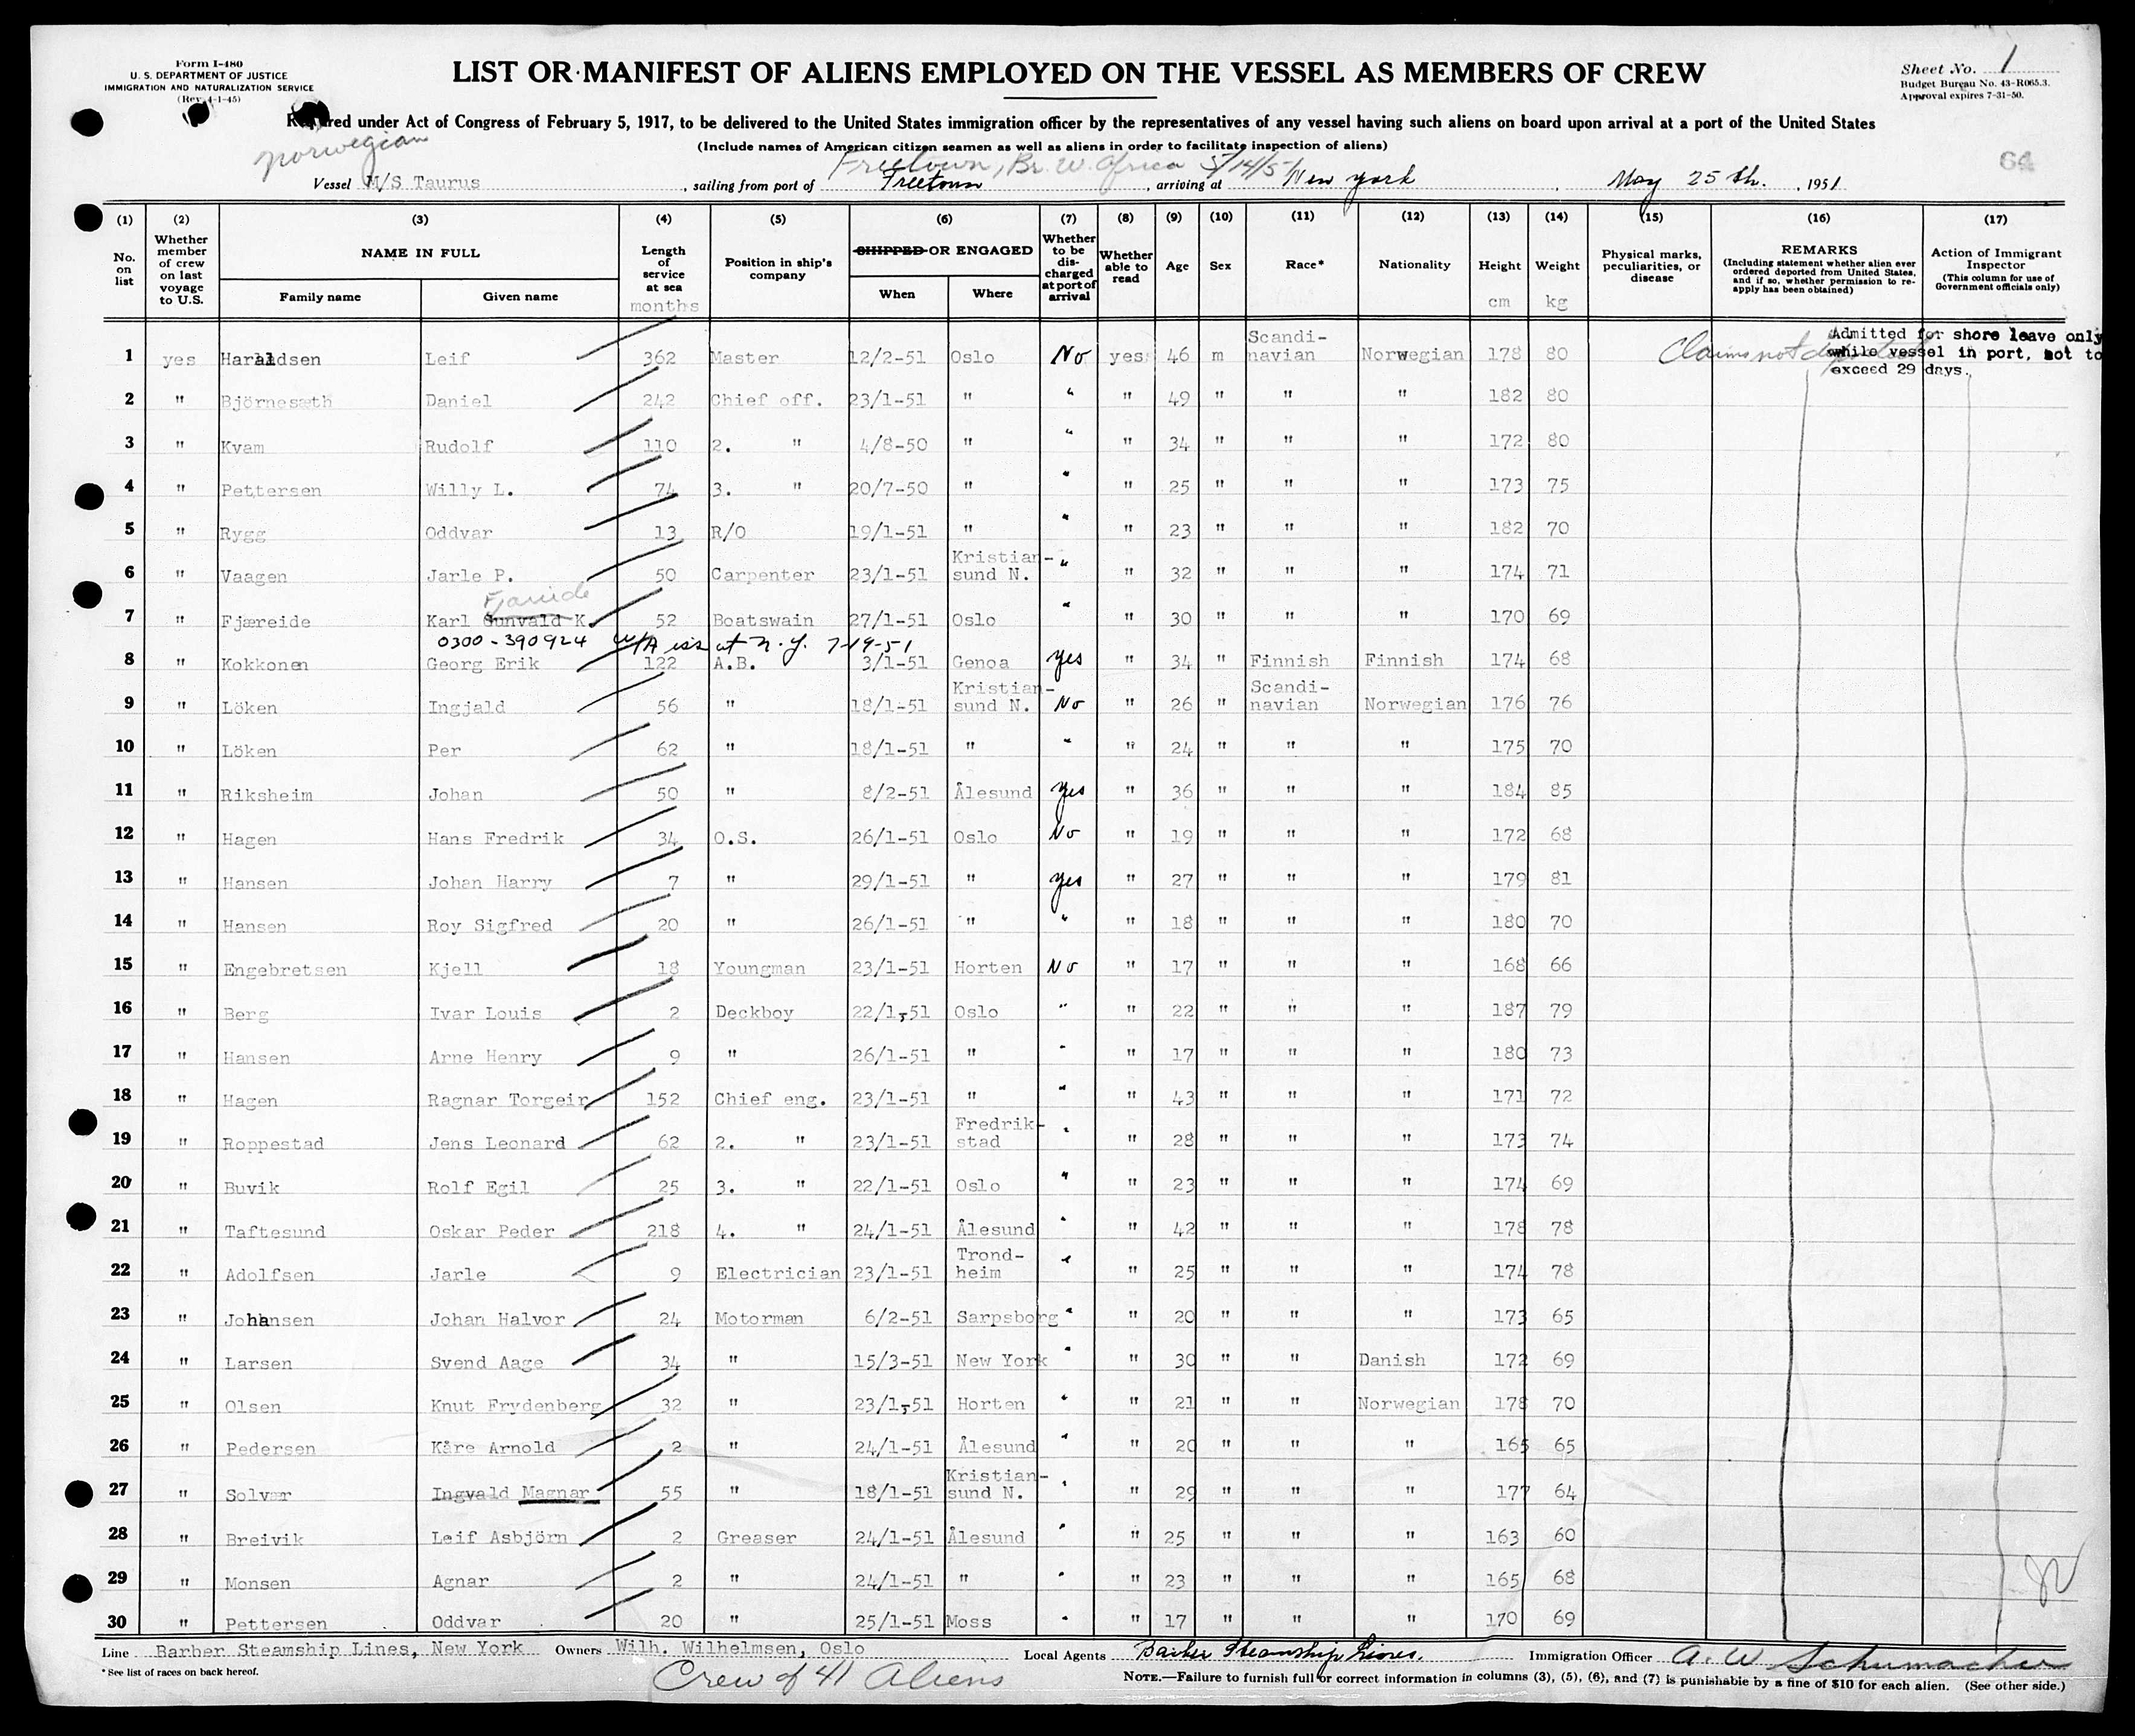 Form I-480
U. S. DEPARTMENT OF JUSTICE
IMMIGRATION AND NATURALIZATION SERVICE
(Rev. 4-1-45)
LIST OR MANIFEST OF ALIENS EMPLOYED ON THE VESSEL AS MEMBERS OF CREW
Sheet No. 1
Budget Bureau No. 43-R065.3.
Approval expires 7-31-50.
Required under Act of Congress of February 5, 1917, to be delivered to the United States immigration officer by the representatives of any vessel having such aliens on board upon arrival at a port of the United States
(Include names of American citizen seamen as well as aliens in order to facilitate inspection of aliens)
norwegian
Freetown, Br. W. Africa 5/14/51
64
Vessel M/S Taurus, sailing from port of Freetown, arriving at New york, May 25th., 1951
(1) (2) (3) (4) (5) (6) (7) (8) (9) (10) (11) (12) (13) (14) (15) (16) (17)
No. on list
Whether member of crew on last voyage to U.S.
NAME IN FULL
Family name
Given name
Length of service at sea
months
Position in ship's company
SHIPPED OR ENGAGED
When
Where
Whether to be discharged at port of arrival
Whether able to read
Age
Sex
Race*
Nationality
Height
cm
Weight
kg
Physical marks, peculiarities, or disease
REMARKS
(Including statement whether alien ever ordered deported from United States, and if so, whether permission to re-apply has been obtained)
Action of Immigrant Inspector
(This column for use of Government officials only)
1 yes Haraldsen Leif 362 Master 12/2-51 Oslo No yes 46 m Scandi-navian Norwegian 178 80 Claims not
Admitted for shore leave only
while vessel in port, not to
exceed 29 days.
2 " Björnesæth Daniel 242 Chief off. 23/1-51 " " " 49 " " " 182 80
3 " Kvam Rudolf 110 2. " 4/8-50 " " " 34 " " " 172 80
4 " Pettersen Willy L. 74 3. " 20/7-50 " " " 25 " " " 173 75
5 " Rygg Oddvar 13 R/O 19/1-51 " " " 23 " " " 182 70
6 " Vaagen Jarle P. 50 Carpenter 23/1-51 Kristian-sund N. " " 32 " " " 174 71
Fjæreide
7 " Fjæreide Karl Gunvald K. 52 Boatswain 27/1-51 Oslo " " 30 " " " 170 69
0300-390924 W/A iss at N.Y. 7-19-51
8 " Kokkonen Georg Erik 122 A.B. 3/1-51 Genoa yes " 34 " Finnish Finnish 174 68
9 " Löken Ingjald 56 " 18/1-51 Kristian-sund N. No " 26 " Scandi-navian Norwegian 176 76
10 " Löken Per 62 " 18/1-51 " " " 24 " " " 175 70
11 " Riksheim Johan 50 " 8/2-51 Ålesund yes " 36 " " " 184 85
12 " Hagen Hans Fredrik 34 O.S. 26/1-51 Oslo No " 19 " " " 172 68
13 " Hansen Johan Harry 7 " 29/1-51 " yes " 27 " " " 179 81
14 " Hansen Roy Sigfred 20 " 26/1-51 " " " 18 " " " 180 70
15 " Engebretsen Kjell 18 Youngman 23/1-51 Horten No " 17 " " " 168 66
16 " Berg Ivar Louis 2 Deckboy 22/1-51 Oslo " " 22 " " " 187 79
17 " Hansen Arne Henry 9 " 26/1-51 " " " 17 " " " 180 73
18 " Hagen Ragnar Torgeir 152 Chief eng. 23/1-51 " " " 43 " " " 171 72
19 " Roppestad Jens Leonard 62 2. " 23/1-51 Fredrik-stad " " 28 " " " 173 74
20 " Buvik Rolf Egil 25 3. " 22/1-51 Oslo " " 23 " " " 174 69
21 " Taftesund Oskar Peder 218 4. " 24/1-51 Ålesund " " 42 " " " 178 78
22 " Adolfsen Jarle 9 Electrician 23/1-51 Trond-heim " " 25 " " " 174 78
23 " Johansen Johan Halvor 24 Motorman 6/2-51 Sarpsborg " " 20 " " " 173 65
24 " Larsen Svend Aage 34 " 15/3-51 New York " " 30 " " Danish 172 69
25 " Olsen Knut Frydenberg 32 " 23/1-51 Horten " " 21 " " Norwegian 178 70
26 " Pedersen Kåre Arnold 2 " 24/1-51 Ålesund " " 20 " " " 165 65
27 " Solvær Ingvald Magnar 55 " 18/1-51 Kristian-sund N. " " 29 " " " 177 64
28 " Breivik Leif Asbjörn 2 Greaser 24/1-51 Ålesund " " 25 " " " 163 60
29 " Monsen Agnar 2 " 24/1-51 " " " 23 " " " 165 68
30 " Pettersen Oddvar 20 " 25/1-51 Moss " " 17 " " " 170 69
Line Barber Steamship Lines, New York Owners Wilh. Wilhelmsen, Oslo Local Agents Barber Steamship Lines. Immigration Officer A. W Schumacher
*See list of races on back hereof.
Crew of 41 Aliens
NOTE.—Failure to furnish full or correct information in columns (3), (5), (6), and (7) is punishable by a fine of $10 for each alien. (See other side.)